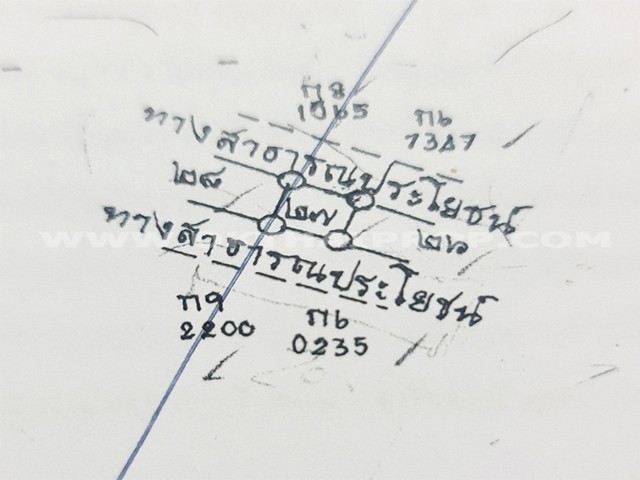 ก8
1065
ก6
7347
ทางสาธารณประโยชน์
๒๘
๒๗
๒๖
ทางสาธารณประโยชน์
ก9
2200
ก6
0235